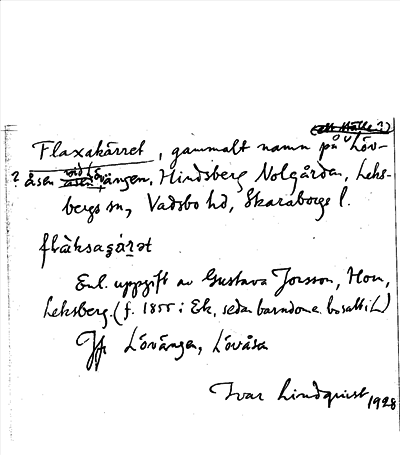 (ett ställe?)
Flaxakärret, gammalt namn på Löv-
? åsen vid Lövängen, Hindsberg Nolgården, Leks-
bergs sn, Vadsbo hd, Skaraborgs l.
Enl. uppgift av Gustava Jonsson, Hon,
Leksberg. (f. 1855 i Ek, sedan barndomen bosatt i L)
Jfr Lövängen, Lövåsa
Ivar Lindquist 1928